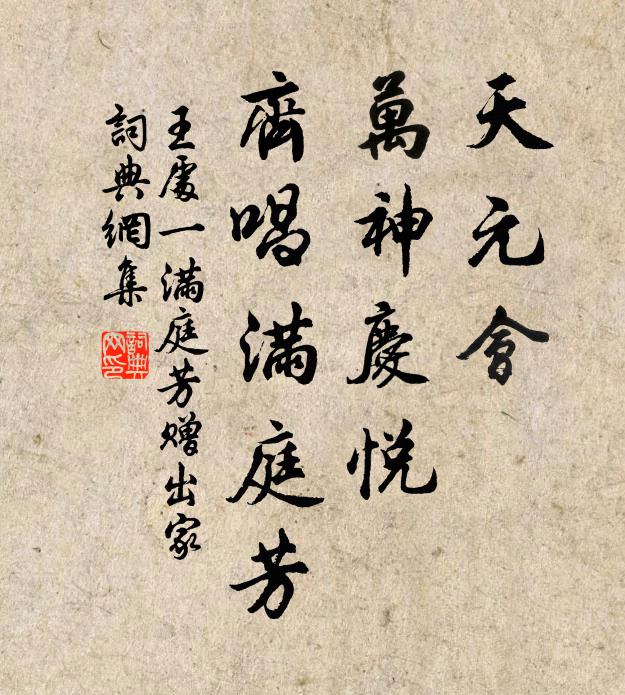 天元會
萬神慶悅
齊唱滿庭芳
王處一滿庭芳赠出家
詞典網集
詞典
网印